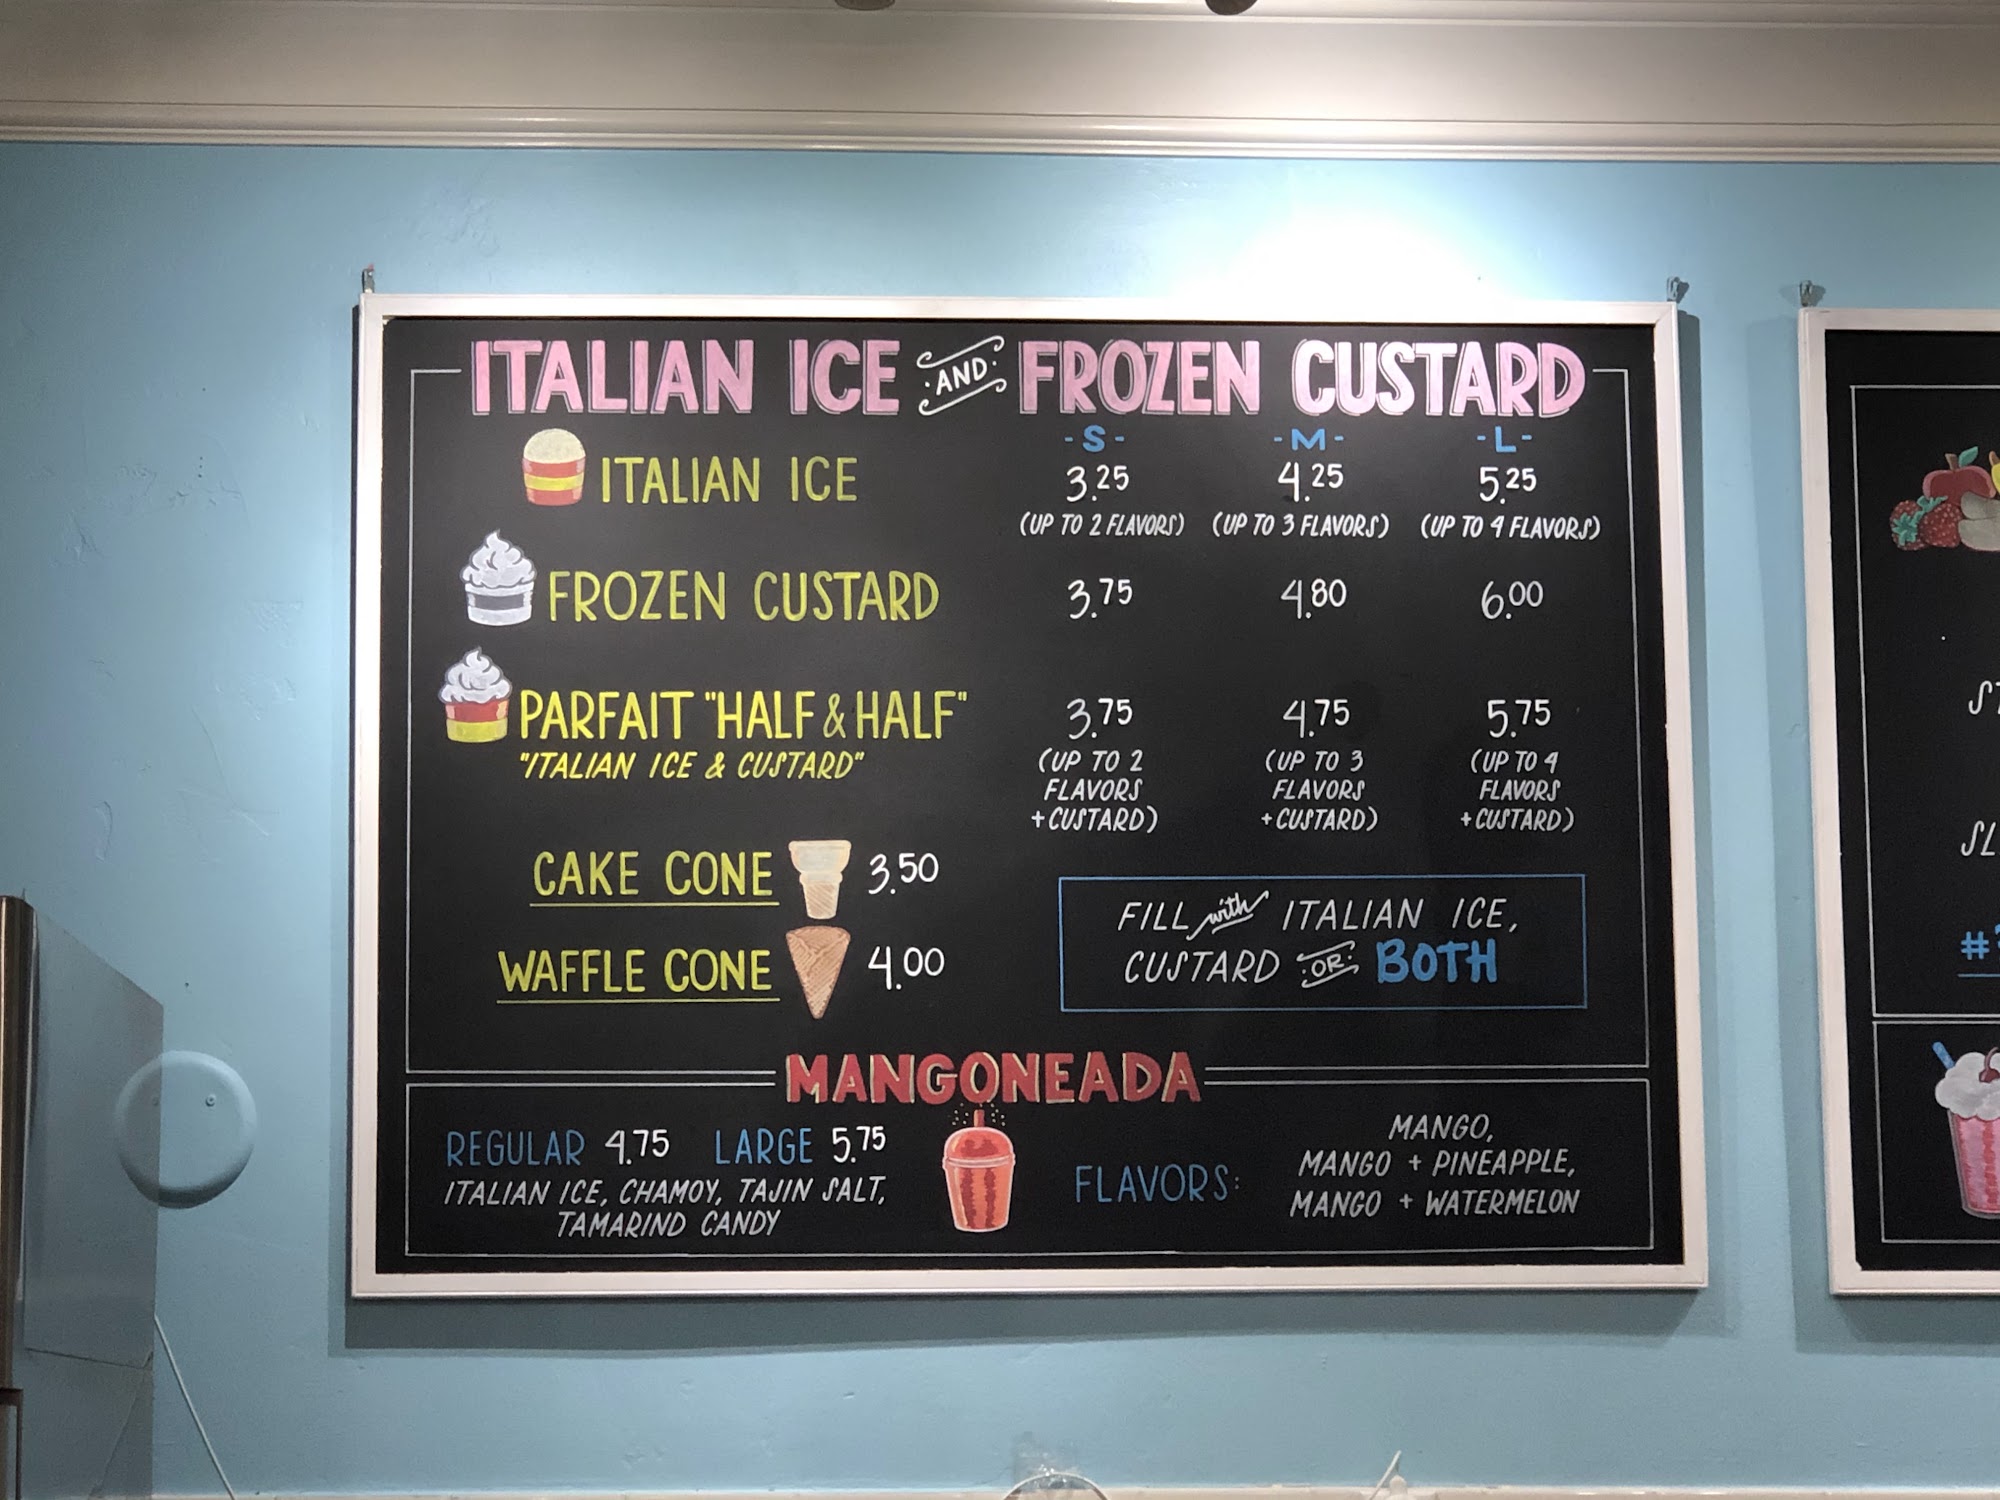 ITALIAN ICE AND FROZEN CUSTARD
-S- -M- -L-
ITALIAN ICE 3.25 4.25 5.25
(UP TO 2 FLAVORS) (UP TO 3 FLAVORS) (UP TO 4 FLAVORS)
FROZEN CUSTARD 3.75 4.80 6.00
PARFAIT "HALF & HALF" 3.75 4.75 5.75
"ITALIAN ICE & CUSTARD"
(UP TO 2 FLAVORS +CUSTARD) (UP TO 3 FLAVORS +CUSTARD) (UP TO 4 FLAVORS +CUSTARD)
CAKE CONE 3.50
WAFFLE CONE 4.00
FILL with ITALIAN ICE,
CUSTARD OR BOTH
MANGONEADA
REGULAR 4.75 LARGE 5.75
ITALIAN ICE, CHAMOY, TAJIN SALT,
TAMARIND CANDY
FLAVORS:
MANGO,
MANGO + PINEAPPLE,
MANGO + WATERMELON